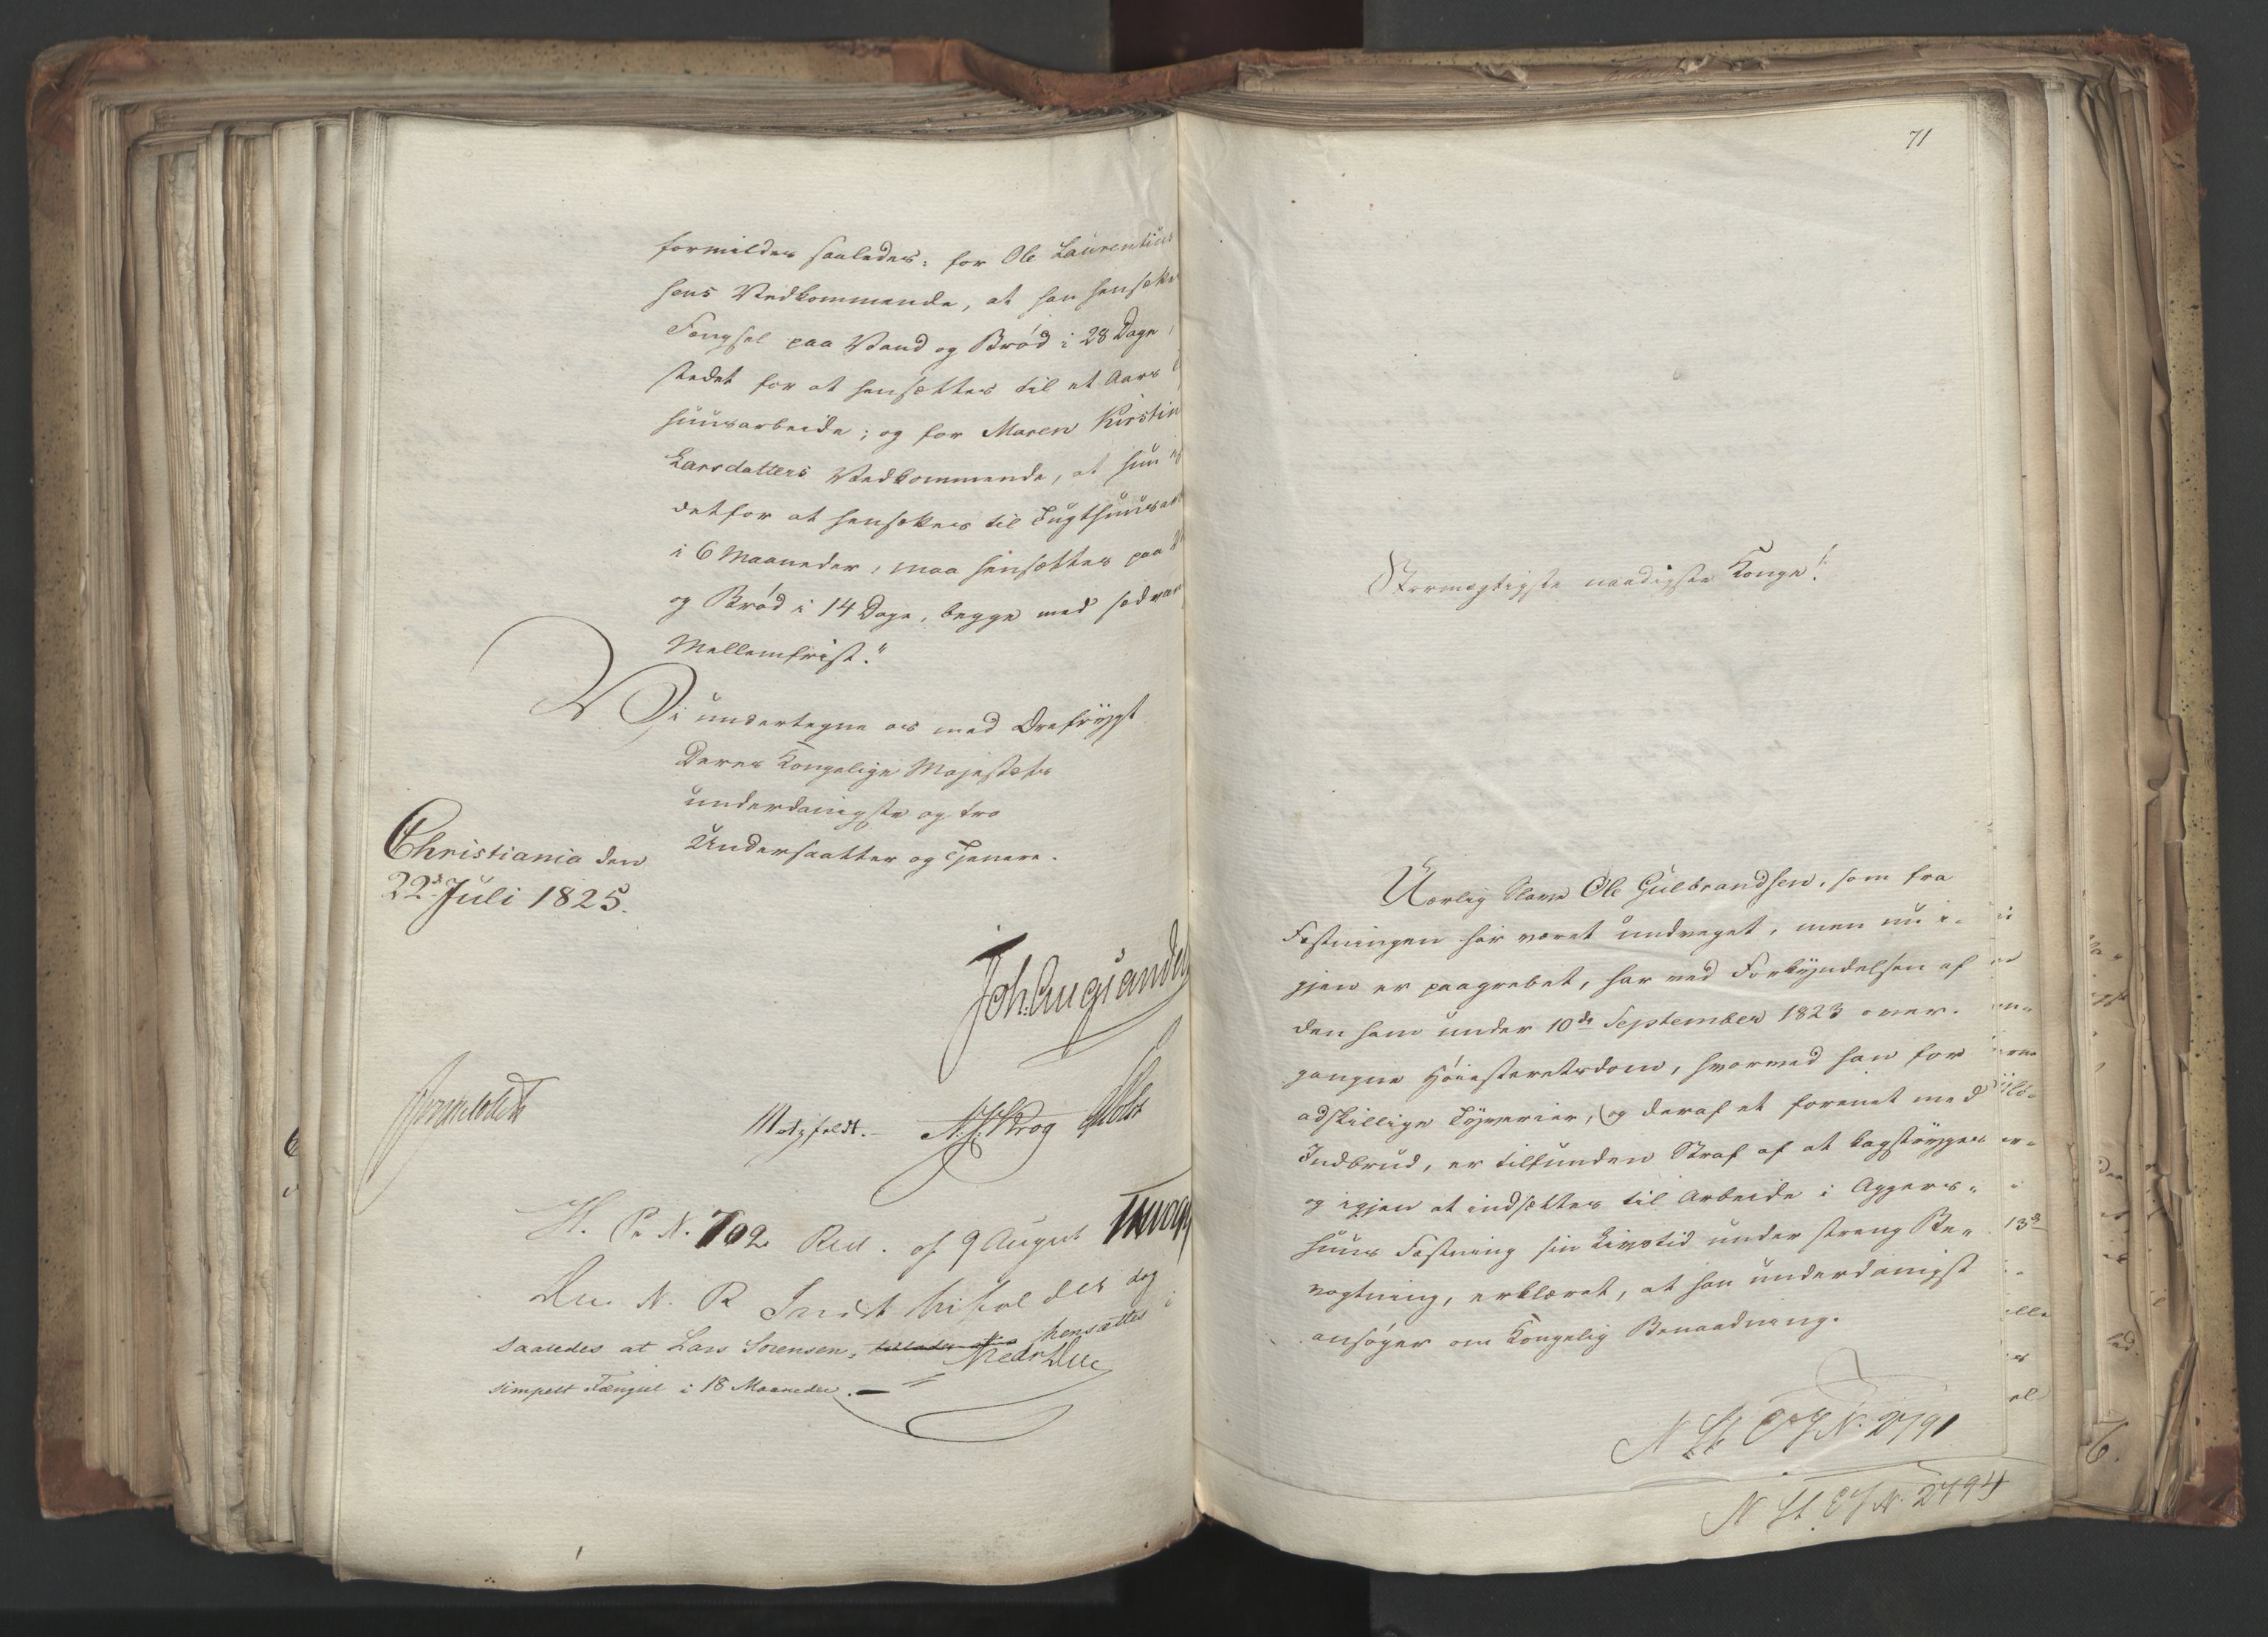 formildes saaledes: for Ole Laurentius
sens Vedkommende, at han hensættes
Fængsel paa Vand og Brød i 28 Dage,
stedet for at hensættes til et Aars
huusarbeide; og for Maren Kirstin
Larsdatters Vedkommende, at hun
detfor at hensættes til Tugthuusar
i 6 Maaneder, maa hensættes paa
og Brød i 14 Dage, begge med sædvan
Mellemfrist."
Vi undertegne os med Ærefrygt
Deres Kongelige Majestæts
underdanigste og tro
Undersaatter og Tjenere.
Christiania den
22d Juli 1825.
Joh. Aug. Sandels
Motzfeldt. N. J. Krog Holst
H. P. N. 702 Res. af 9 August
Den N. R. Indst bifaldes dog
saaledes at Lars Sørensen, hensættes i
simpelt Fængsel i 18 Maaneder.
Fredr Due
71
Stormægtigste naadigste Konge!
Uærlig Slave Ole Gulbrandsen, som fra
Fæstningen har været undveget, men nu i-
gjen er paagrebet, har ved Forkyndelsen af
den ham under 10de September 1823 over-
gangne Høiesteretsdom, hvorved han for
adskillige Tyverier, og deraf et forenet med
Indbrud, er tilfunden Straf af at kagstryges
og igjen at indsættes til Arbeide i Aggers-
huus Fæstning sin Livstid under streng Be-
vogtning, erklæret, at han underdanigst
ansøger om Kongelig Benaadning.
N St E J N. 2791
N St. E J N. 2794